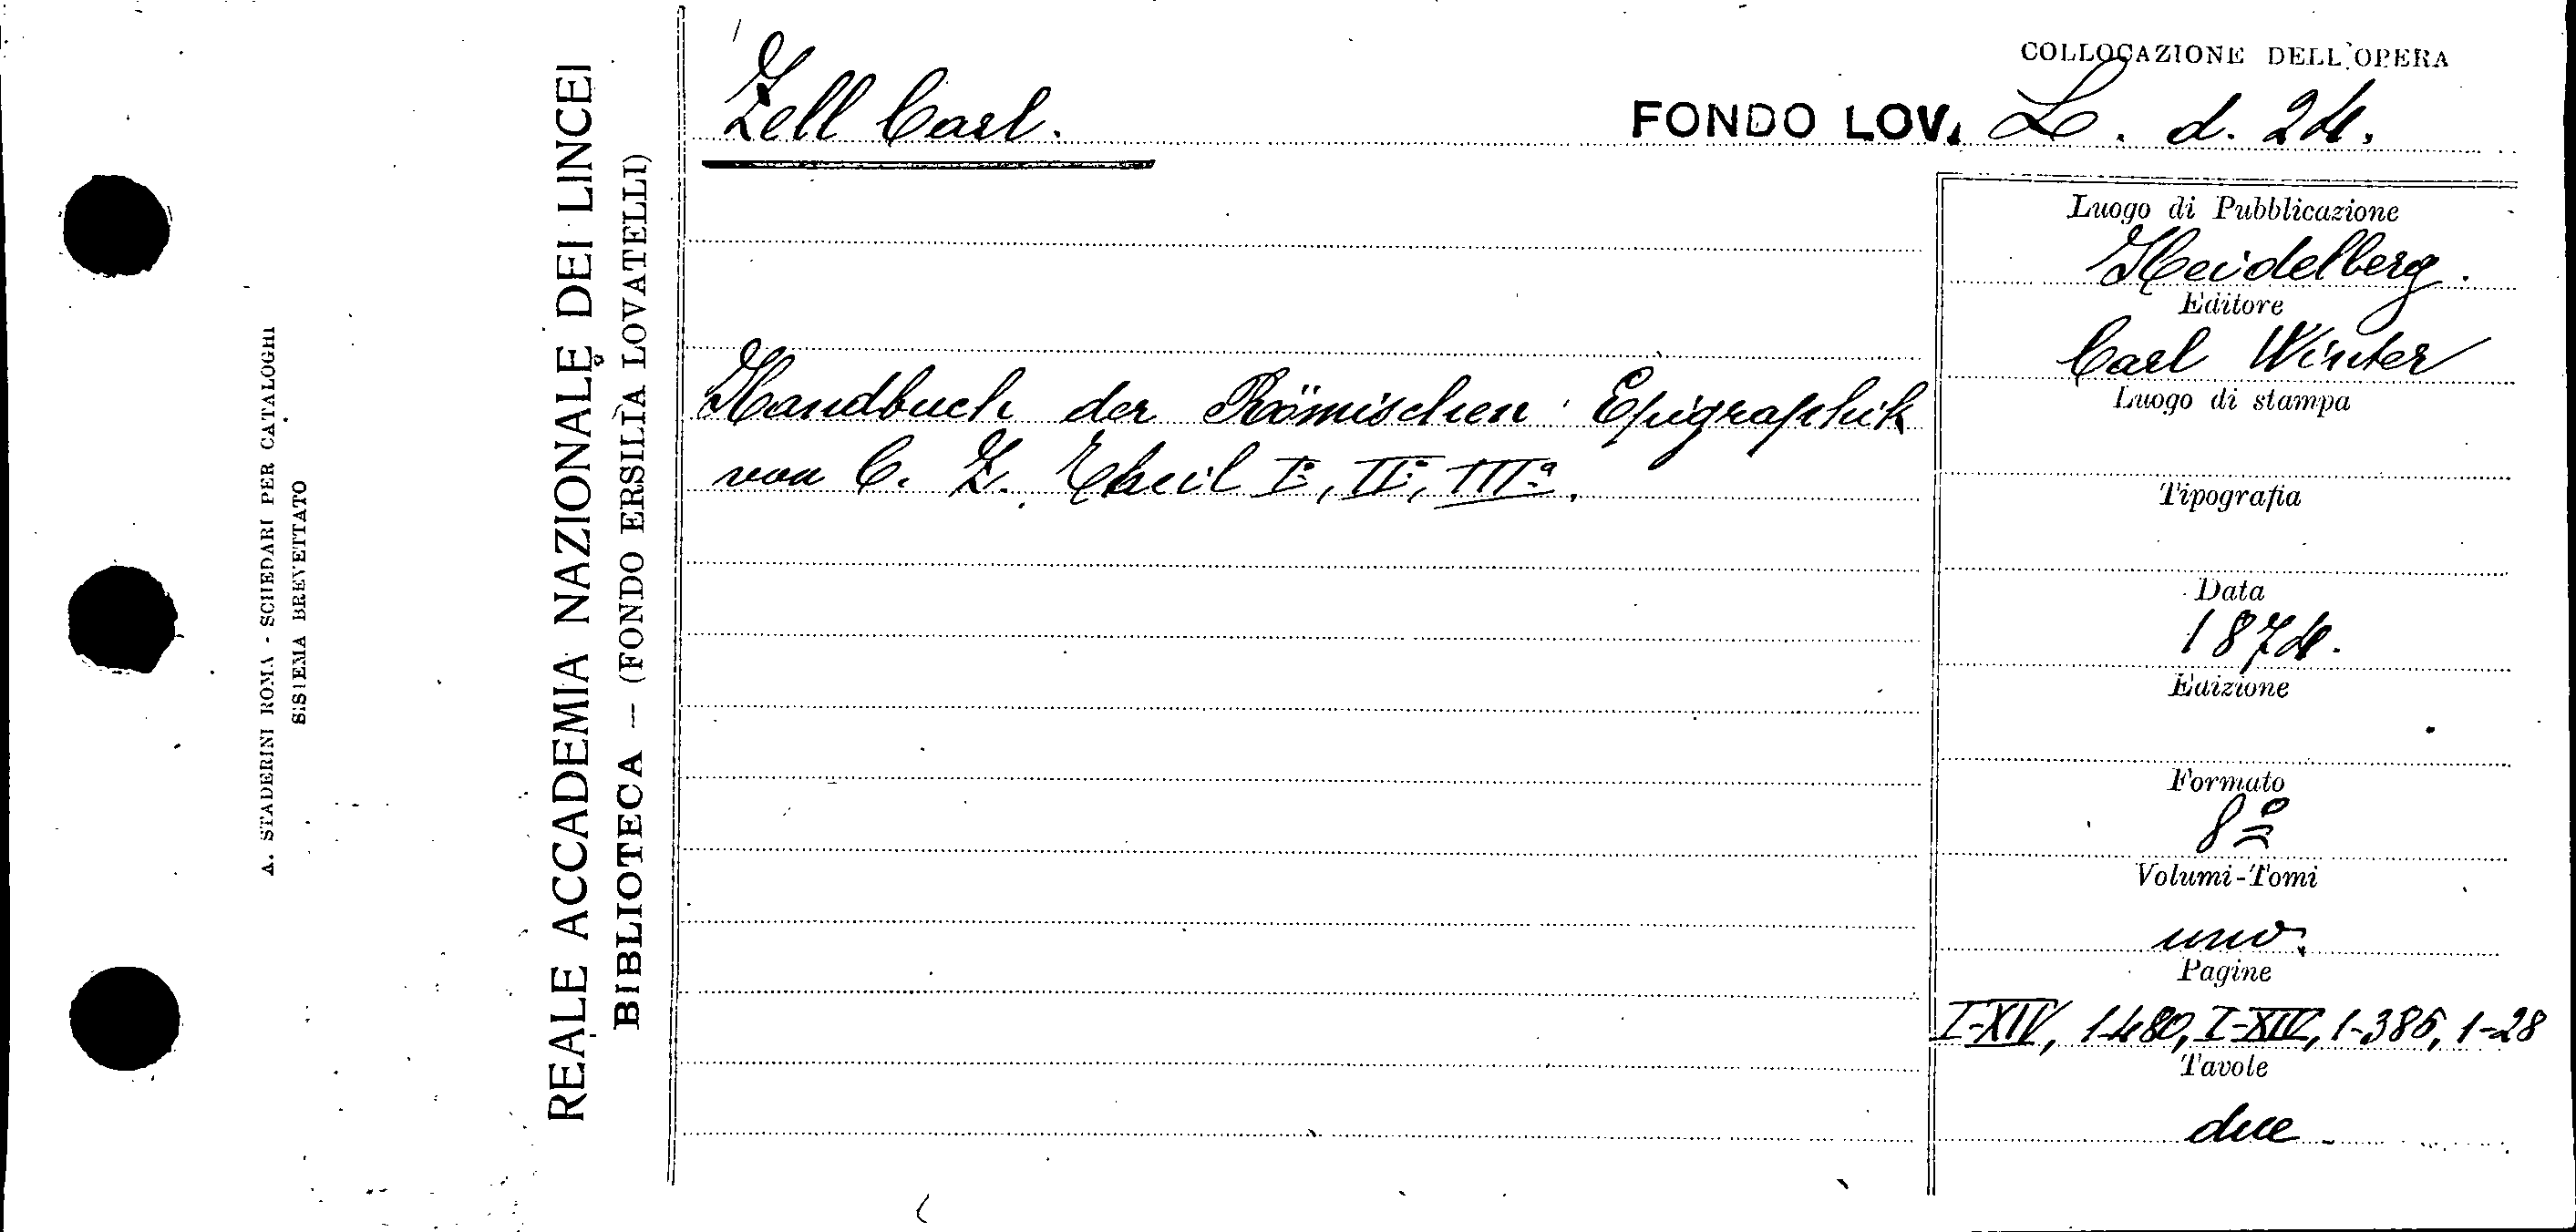 COLLOCAZIONE DELL'OPERA
Zell Carl.
FONDO LOV. L. d. 24.
Handbuch der Römischen Epigraphik
von C. Z. Theil I.ª, II.ª, III.ª.
Luogo di Pubblicazione
Heidelberg.
Editore
Carl Winter
Luogo di stampa
Tipografia
Data
1874.
Edizione
Formato
8º
Volumi-Tomi
uno.
Pagine
I-XIV, 1-480, I-XIV, 1-385, 1-28
Tavole
due
REALE ACCADEMIA NAZIONALE DEI LINCEI
BIBLIOTECA — (FONDO ERSILIA LOVATELLI)
A. STADERINI ROMA - SCHEDARI PER CATALOGHI
SISTEMA BREVETTATO